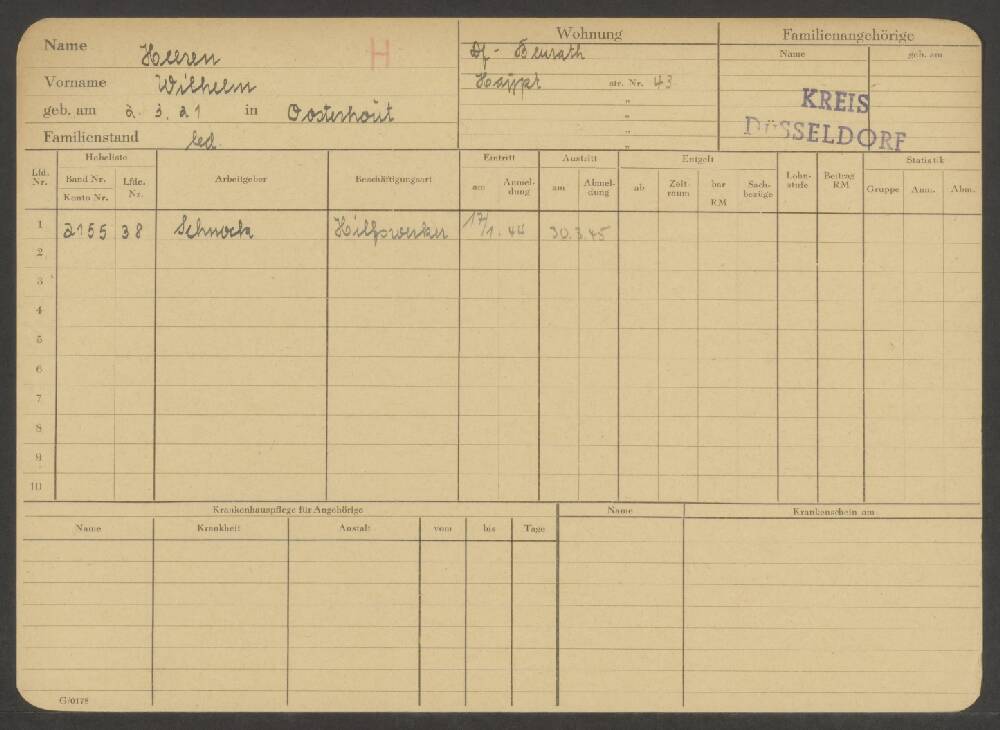 Name Heeren H
Vorname Wilhelm
geb. am 2. 3. 21 in Oosterhout
Familienstand led.
Wohnung
Df - Benrath
Haupt str. Nr. 43
"
"
"
"
Familienangehörige
Name geb. am
KREIS
DÜSSELDORF
Lfd. Nr. Hebeliste Arbeitgeber Beschäftigungsart Eintritt Austritt Entgelt Lohn-stufe Beitrag RM Statistik
Band Nr. Lfde. Nr. am Anmel-dung am Abmel-dung ab Zeit-raum bar RM Sach-bezüge Gruppe Anm. Abm.
Konto Nr.
1 2155 38 Schnock Hilfswerker 17/1.44 30.3.45
2
3
4
5
6
7
8
9
10
Krankenhauspflege für Angehörige
Name Krankheit Anstalt vom bis Tage
Name Krankenschein am
G/0178